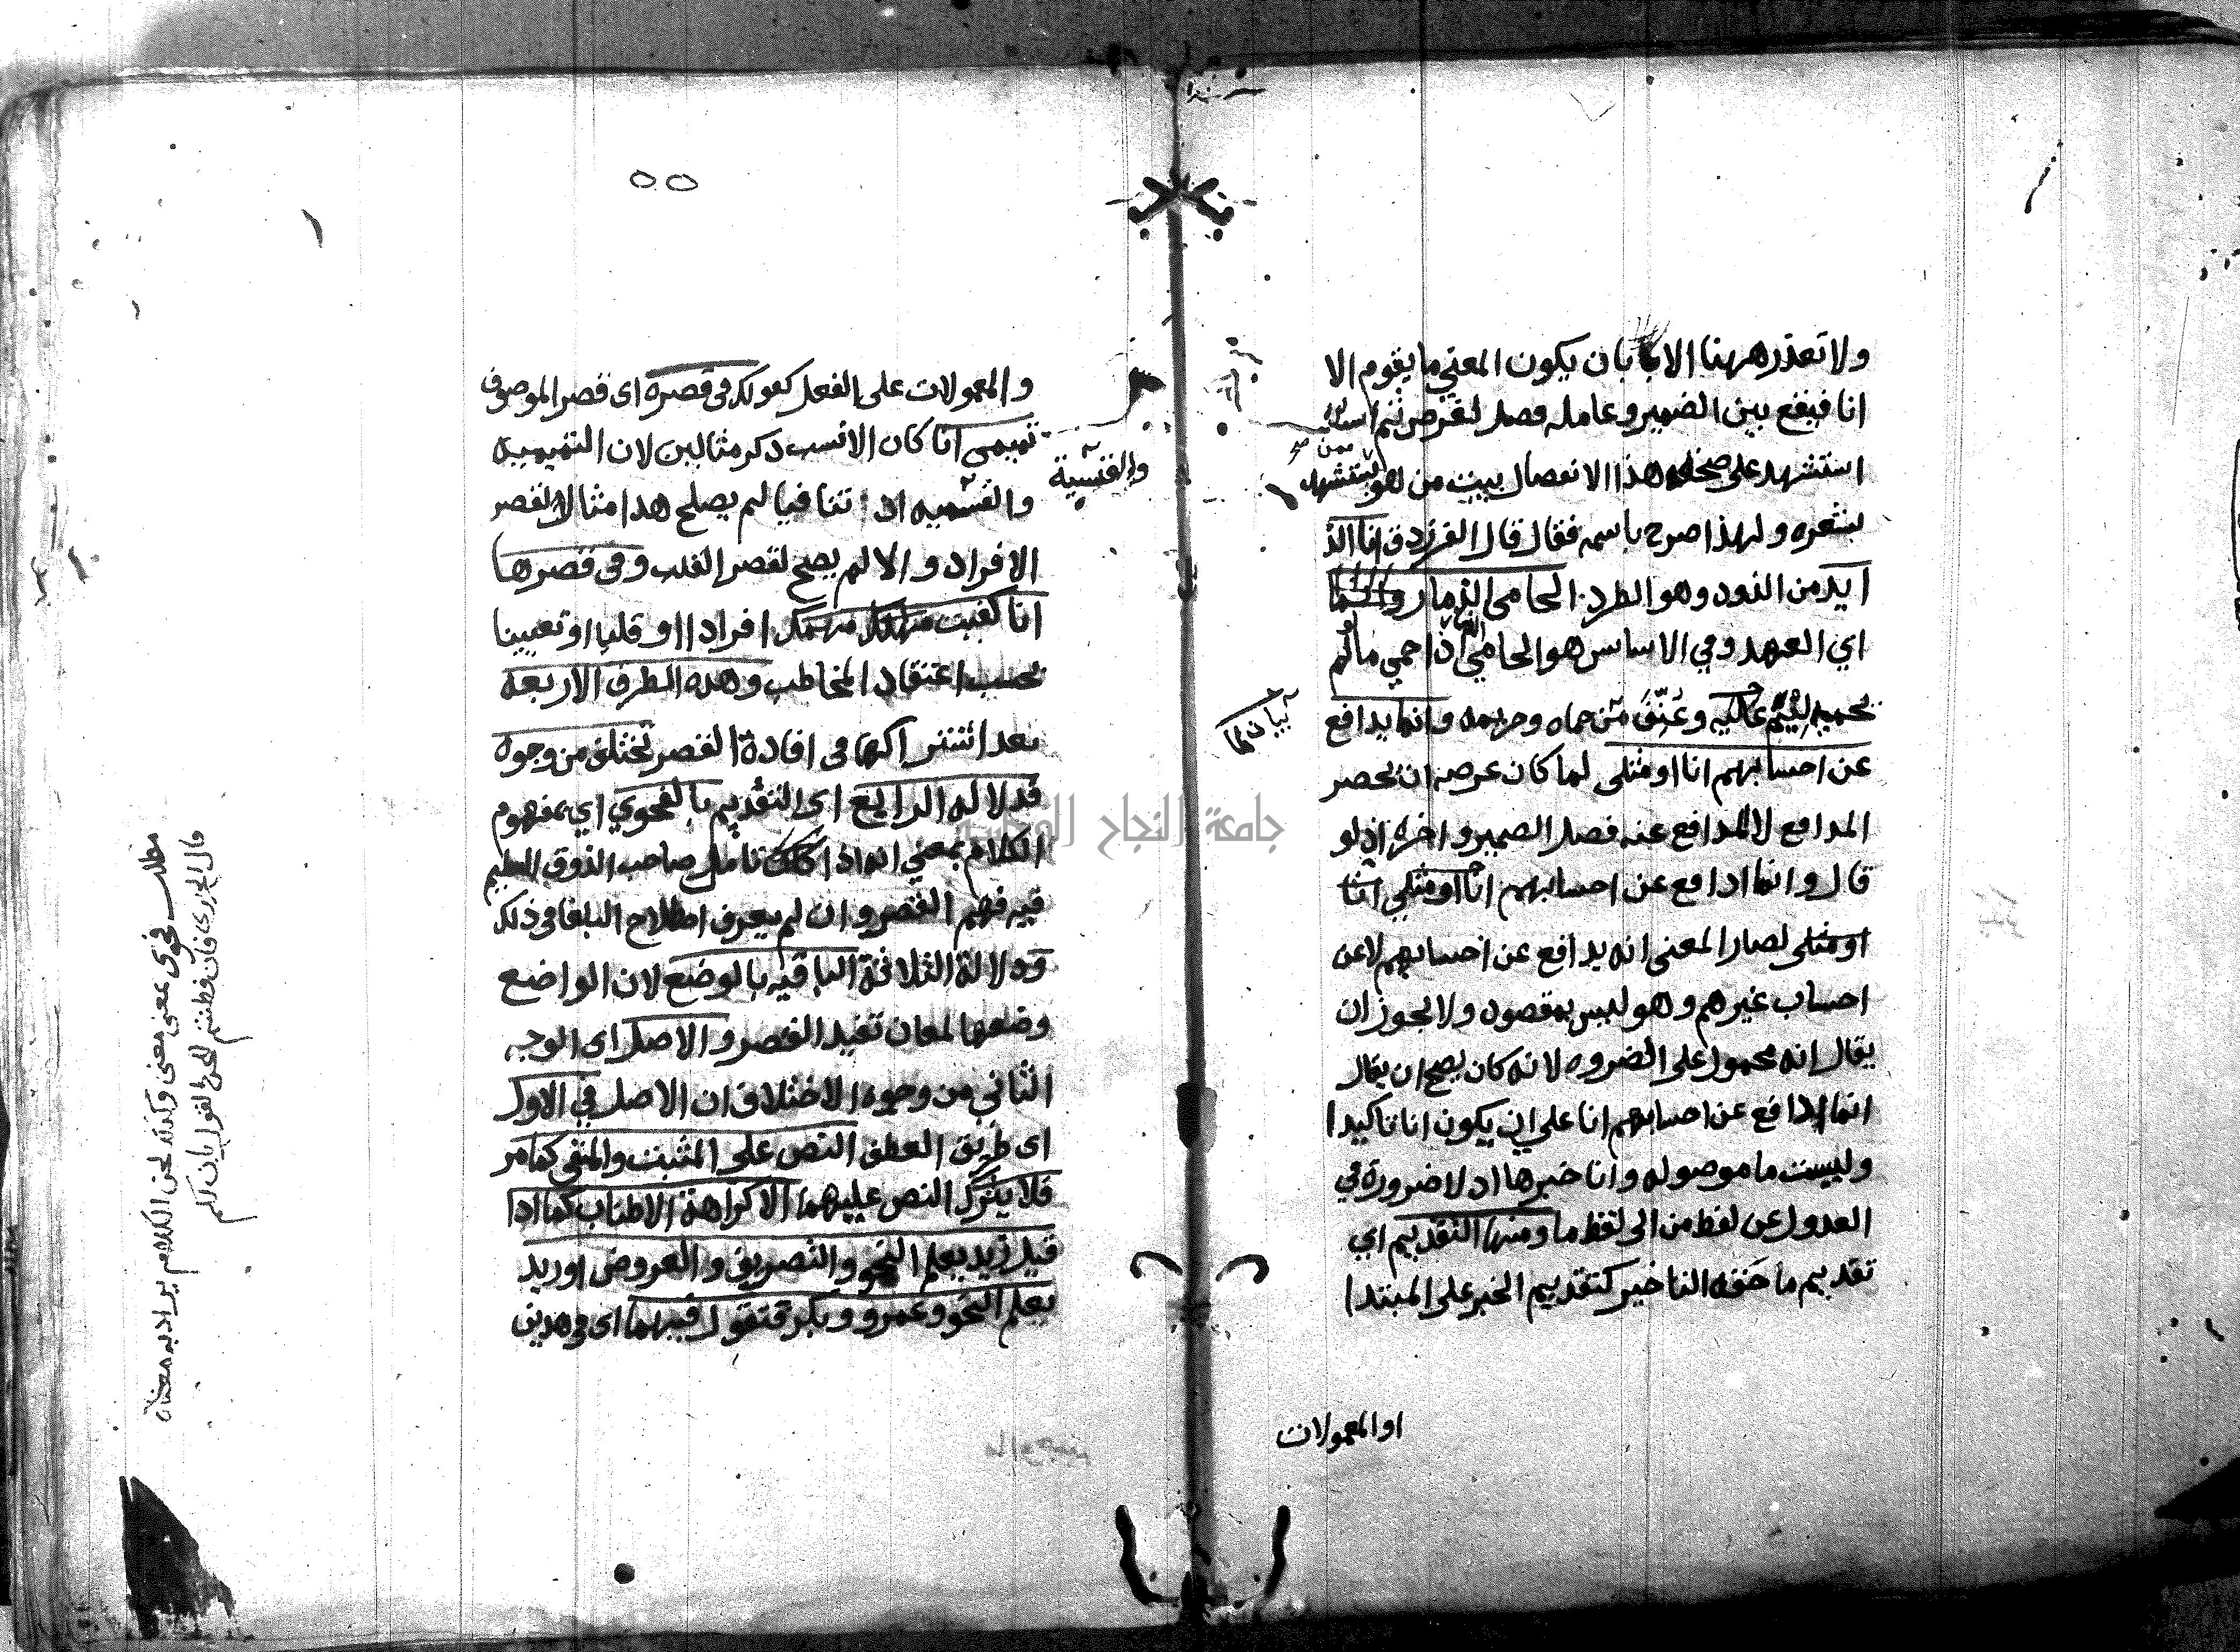 ولا تعذر ههنا الا بان يكون المعني ما يقوم الا
انا فيقع بين الضمير وعامله فصل لغرض ثم
استشهد على صحة هذا الانفصال ببيت من هو ممن يستشهد
بشعره ولهذا صرح باسمه فقال قال الفرزدق انا الذا
ايد من الذود وهو الطرد الحامي الذمار
اي العهد وفي الاساس هو الحامي الذمار اذا حمي ما لو لم
يحميه ليم وعنف من حماه وحريمه وانما يدافع
بيان لما
عن احسابهم انا او مثلي لما كان غرضه ان يحصر
المدافع لا المدافع عنه فصل الضمير واخره اذ لو
قال وانما ادافع عن احسابهم انا او مثلي
او مثلي لصار المعنى انه يدافع عن احسابهم لا عن
احساب غيرهم وهو ليس بمقصود ولا يجوز ان
يقال انه محمول على الضروره لانه كان يصح ان يقال
انما ادافع عن احسابهم انا على ان يكون انا تاكيدا
وليست ما موصوله وانا خبرها اذ لا ضرورة في
العدول عن لفظ من الى لفظ ما ومنها التقديم اي
تقديم ما حقه التاخير كتقديم الخبر على المبتدا
او المعمولات
٥٥
والمعمولات على الفعل كقولك في قصره اى قصر الموصوف
تميمي انا كان الانسب ذكر مثالين لان التميميه
والقيسية
والقسميه ان تنافيا لم يصلح هذا مثالا لقصر
الافراد والا لم يصح لقصر القلب وفي قصرها
انا كفيت مهمك افرادا او قلبا او تعيينا
بحسب اعتقاد المخاطب وهذه الطرق الاربعه
بعد اشتراكها في افادة القصر تختلف من وجوه
فدلاله الرابع اى التقديم بالفحوي اي بمفهوم
الكلام بمعني انه اذا تامل صاحب الذوق السليم
فيه فهم القصر وان لم يعرف اصطلاح البلغا في ذلك
ودلالة الثلاثة الباقيه بالوضع لان الواضع
وضعها لمعان تفيد القصر والاصل اى الوجه
الثاني من وجوه الاختلاف ان الاصل في الاول
اى طريق العطف النص على المثبت والمنفى كما مر
فلا يترك النص عليهما الا كراهة الاطناب كما اذا
قيل زيد يعلم النحو والتصريف والعروض او زيد
يعلم النحو وعمرو وبكر فتقول فيهما اى في هذين
مطلب فحوى بمعنى معنى وكذلك لحن الكلام يراد به معناه
قال الحريري فان فطنتم للحن القول بان لكم
جامعة النجاح الوطنية